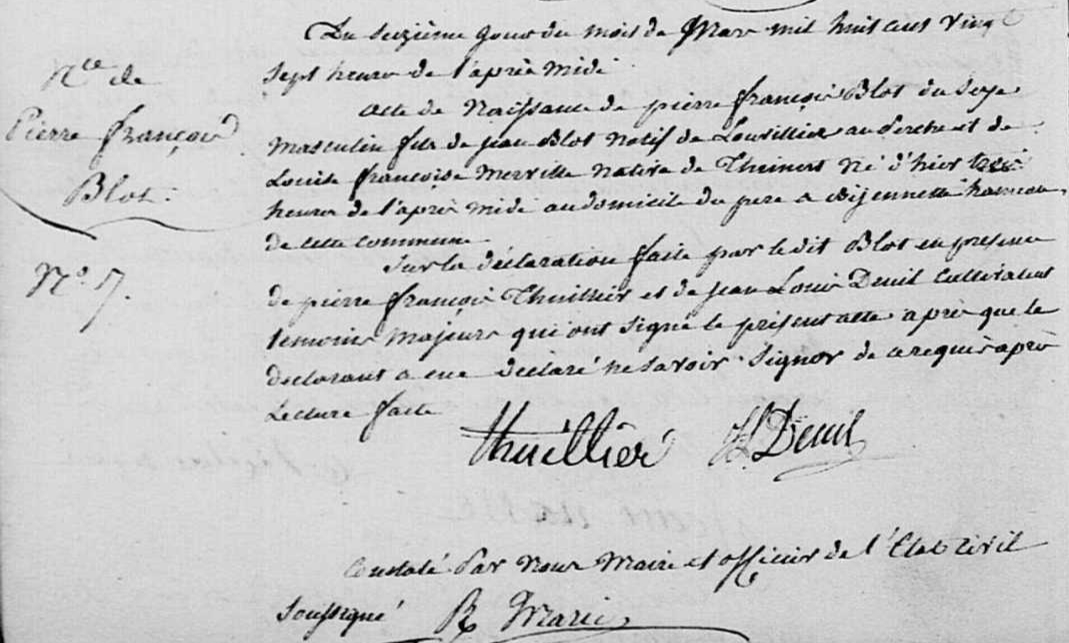 Du Seizième Jour du mois de Mars mil huit cent vingt
Sept heure de l'après midi
Nce de
Pierre françois
Blot.
N.° 7.
acte de Naissance de pierre françois Blot du Sexe
masculin fils de Jean Blot natif de Louvillier au perche et de
Louise françoise merville native de Thimert né d'hier trois
heures de l'après midi au domicile du pere a hameau
de cette commune
Sur la déclaration faite par le dit Blot en presence
de pierre françois Thuillier et de Jean Louis Denil Cultivateurs
temoins majeurs qui ont Signé le présent acte après que le
declarant a eue declaré ne Savoir Signer de ce requis après
Lecture faite
thuillier Denil
Constaté Par Nous Maire et officier de l'État Civil
Soussigné R Marie